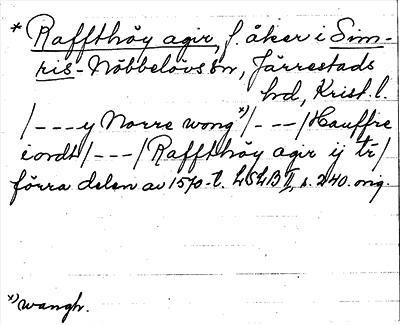 * Raffthöy agir, f. åker i Sim-
ris-Nöbbelövs sn, Järrestads
hd, Krist. l.
/---y Norre wong *)/---/Hauffre
iordt/---/Raffthöy agir ij tr/
förra delen av 1570-t. LSLB II, s. 240. orig.
*) wangh.